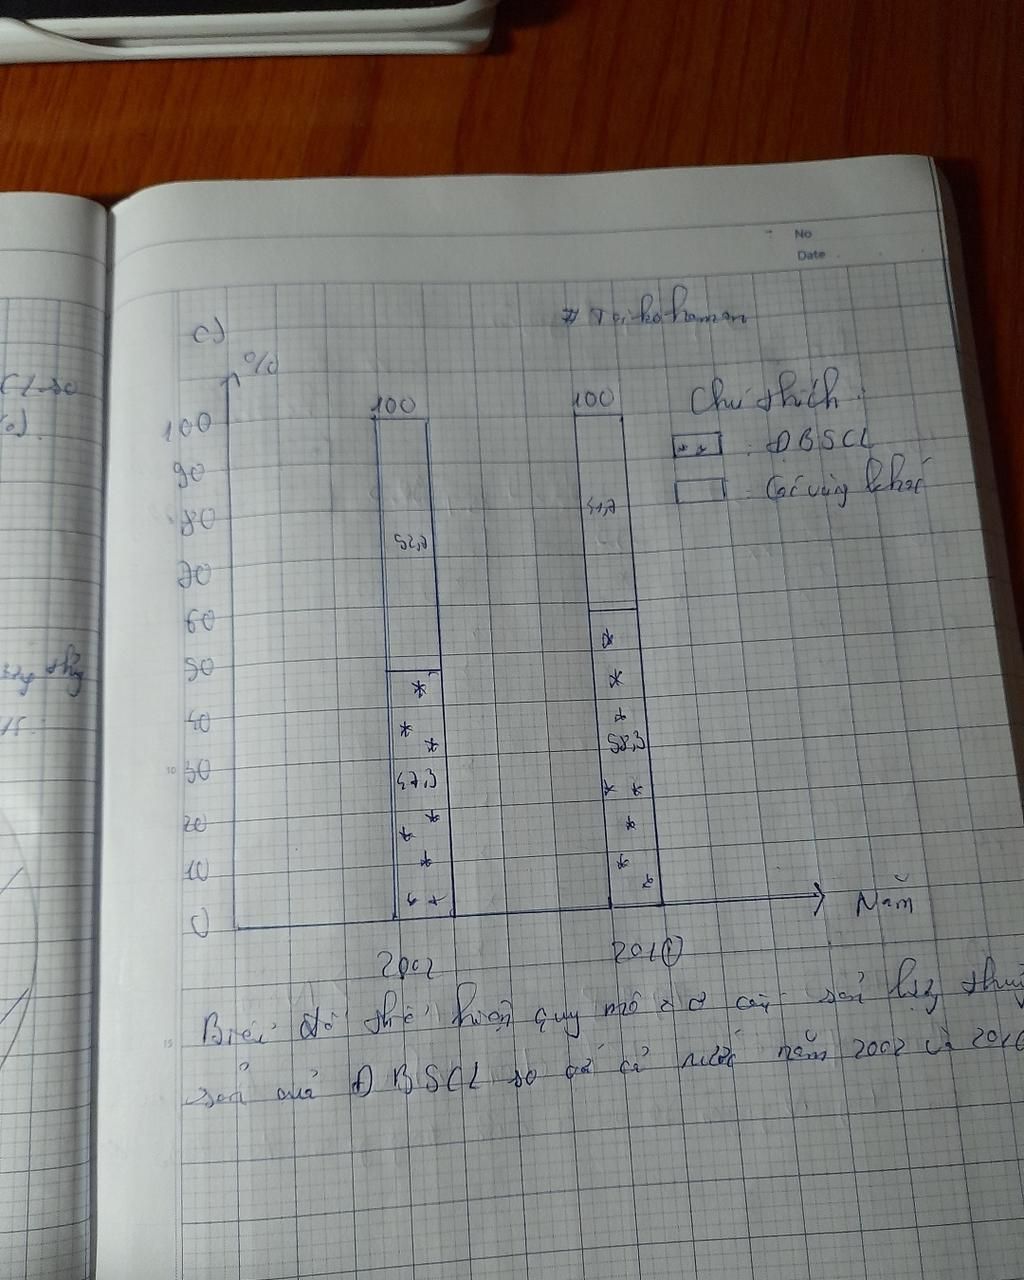 No
Date
c)
%
Chú thích:
: ĐBSCL
: Các vùng khác
100
90
80
70
60
50
40
30
20
10
0
100
52,7
47,3
2002
100
41,7
58,3
Năm
Biểu đồ thể hiện quy mô cơ cấu sản lượng thuỷ
sản của ĐBSCL so với cả nước năm 2002 và